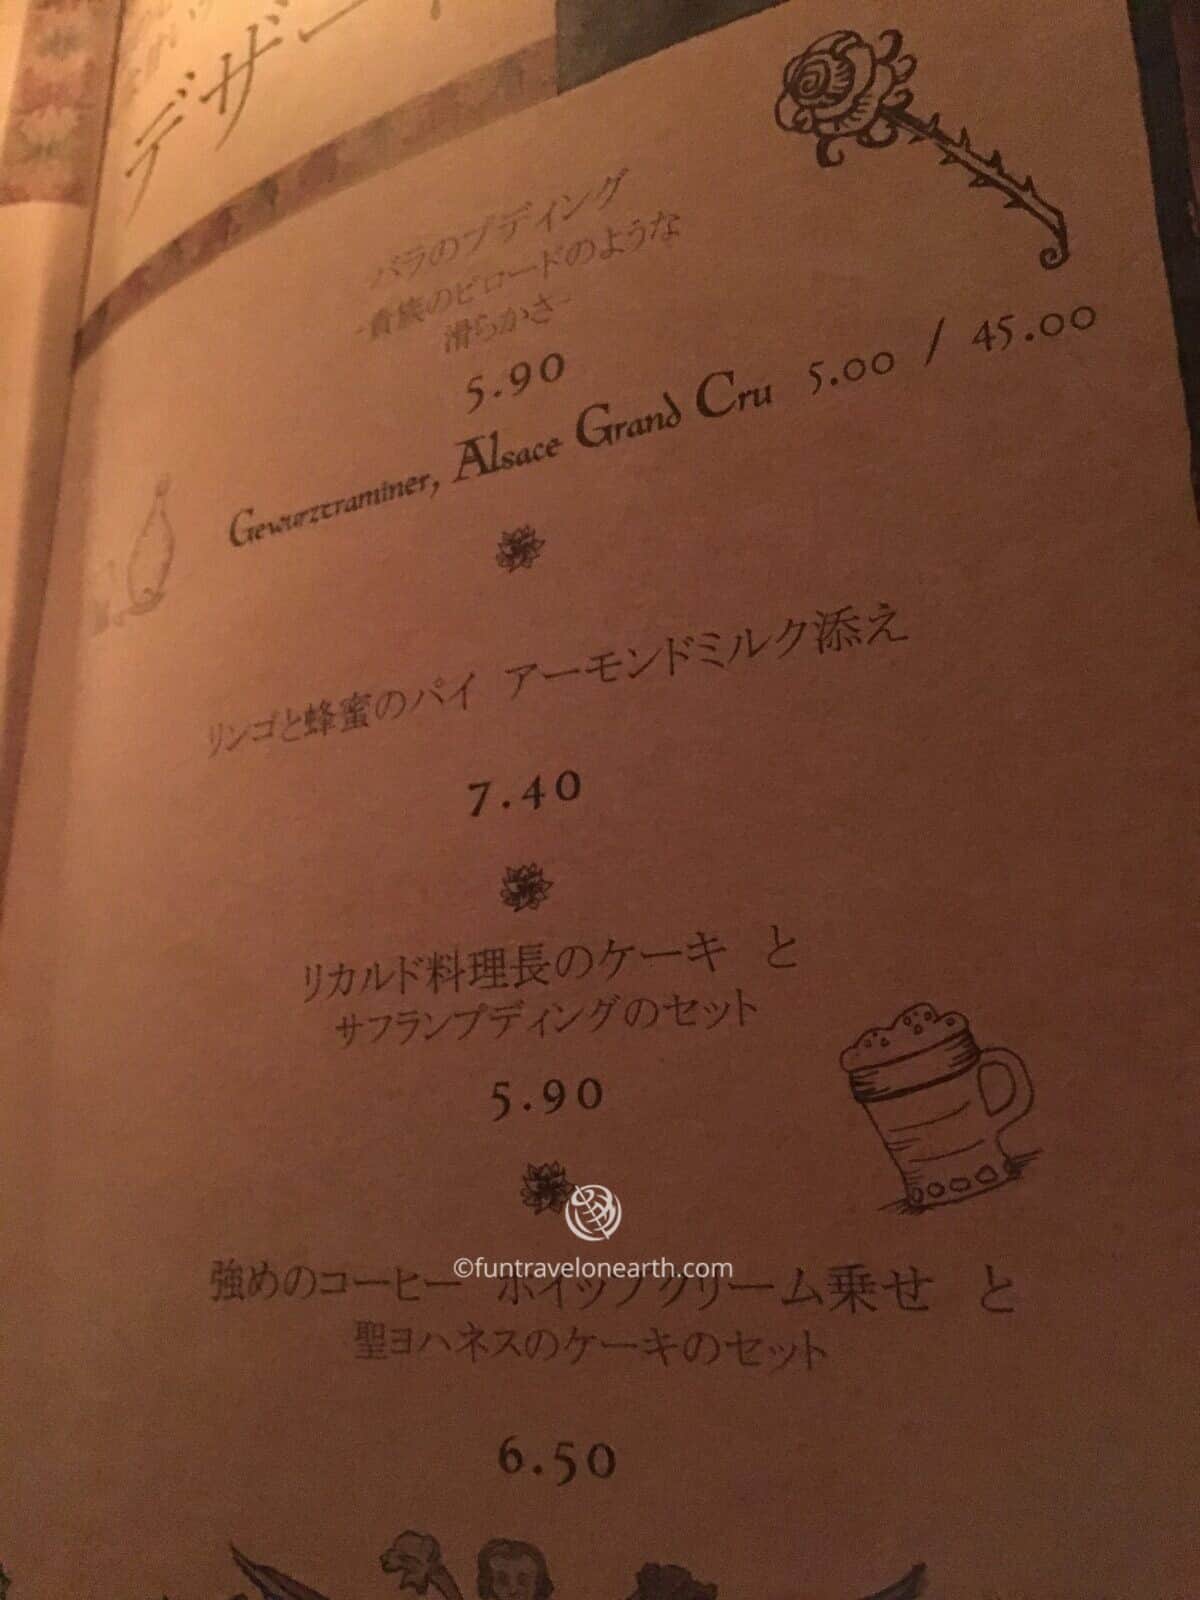 デザート
バラのプディング
-貴族のビロードのような
滑らかさ-
5.90
Gewurztraminer, Alsace Grand Cru 5.00 / 45.00
リンゴと蜂蜜のパイ アーモンドミルク添え
7.40
リカルド料理長のケーキ と
サフランプディングのセット
5.90
©funtravelonearth.com
強めのコーヒー ホイップクリーム乗せ と
聖ヨハネスのケーキのセット
6.50